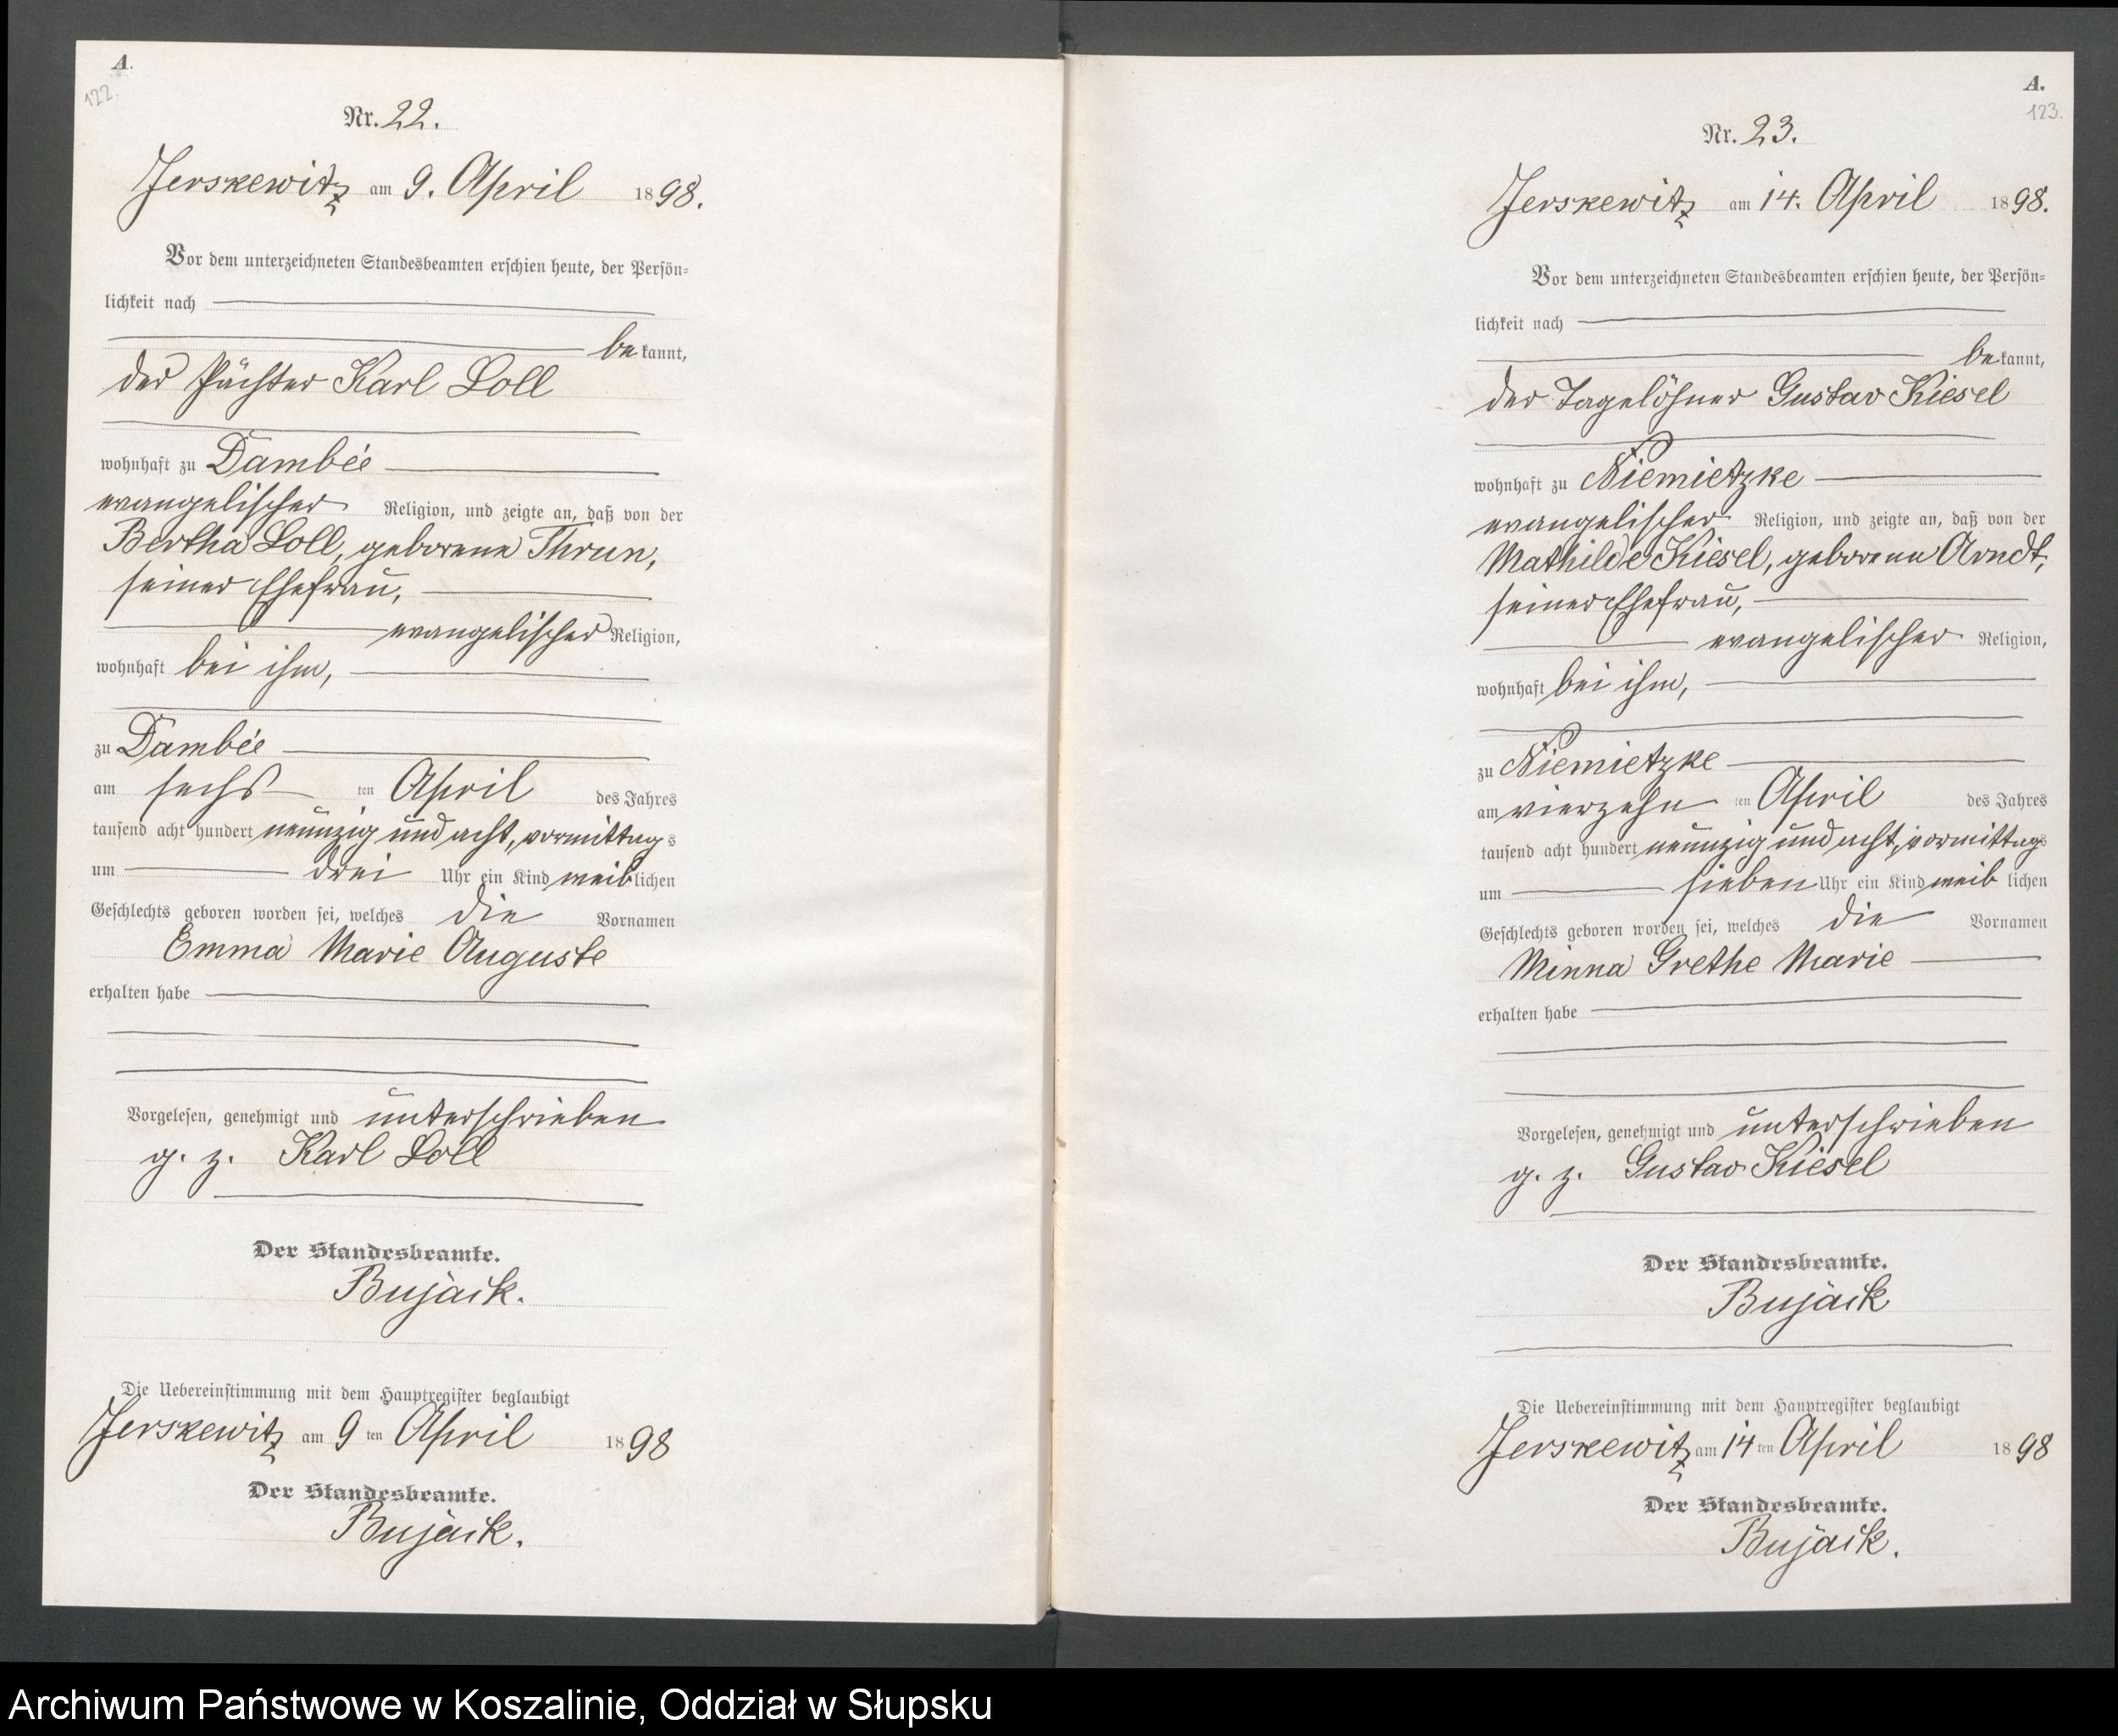 A.
122.
Nr. 22.
Jerskewitz am 9. April 1898.
Vor dem unterzeichneten Standesbeamten erschien heute, der Persön-
lichkeit nach
bekannt,
der Pächter Karl Loll
wohnhaft zu Dambée
evangelischer Religion, und zeigte an, daß von der
Bertha Loll, geborene Thrun,
seiner Ehefrau,
evangelischer Religion,
wohnhaft bei ihm,
zu Dambée
am sechsten April des Jahres
tausend acht hundert neunzig und acht, vormittags
um drei Uhr ein Kind weiblichen
Geschlechts geboren worden sei, welches die Vornamen
Emma Marie Auguste
erhalten habe
Vorgelesen, genehmigt und unterschrieben
g. z. Karl Loll
Der Standesbeamte.
Bujack.
Die Uebereinstimmung mit dem Hauptregister beglaubigt
Jerskewitz am 9ten April 1898
Der Standesbeamte.
Bujack.
A.
123.
Nr. 23.
Jerskewitz am 14. April 1898.
Vor dem unterzeichneten Standesbeamten erschien heute, der Persön-
lichkeit nach
bekannt,
der Tagelöhner Gustav Kiesel
wohnhaft zu Niemietzke
evangelischer Religion, und zeigte an, daß von der
Mathilde Kiesel, geborene Arndt,
seiner Ehefrau,
evangelischer Religion,
wohnhaft bei ihm,
zu Niemietzke
am vierzehnten April des Jahres
tausend acht hundert neunzig und acht, vormittags
um sieben Uhr ein Kind weiblichen
Geschlechts geboren worden sei, welches die Vornamen
Minna Grethe Marie
erhalten habe
Vorgelesen, genehmigt und unterschrieben
g. z. Gustav Kiesel
Der Standesbeamte.
Bujack
Die Uebereinstimmung mit dem Hauptregister beglaubigt
Jerskewitz am 14ten April 1898
Der Standesbeamte.
Bujack.
Archiwum Państwowe w Koszalinie, Oddział w Słupsku